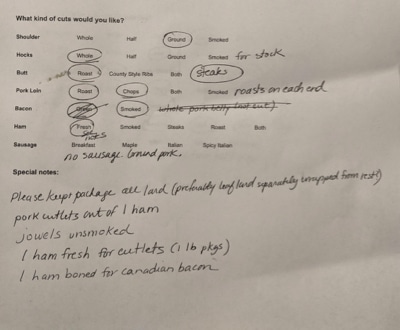 What kind of cuts would you like?
Shoulder Whole Half Ground Smoked
Hocks Whole Half Ground Smoked for stock
Butt Roast County Style Ribs Both steaks
Pork Loin Roast Chops Both Smoked roasts on each end
Bacon Smoked whole pork belly (not cut)
Ham Fresh Smoked Steaks Roast Both
Sausage Breakfast Maple Italian Spicy Italian
no sausage Ground pork.
Special notes:
Please kept package all lard (preferably leaf lard separately wrapped from rest!)
pork cutlets out of 1 ham
jowels unsmoked
1 ham fresh for cutlets (1 lb pkgs)
1 ham boned for canadian bacon